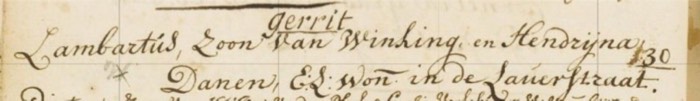 gerrit
Lambartús, Zoon Van Winking en Hendrijna
30
Danen, E:L: won̄ in de Lauerstraat.